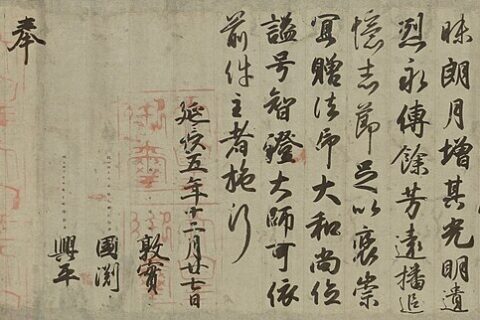 昧朗月增其光明遺
烈永傳餘芳遠播追
憶志節足以褒崇
宜贈法印大和尚位
諡号智證大師可依
前件主者施行
延長五年十二月廿七日
敦實
國淵
興平
奉